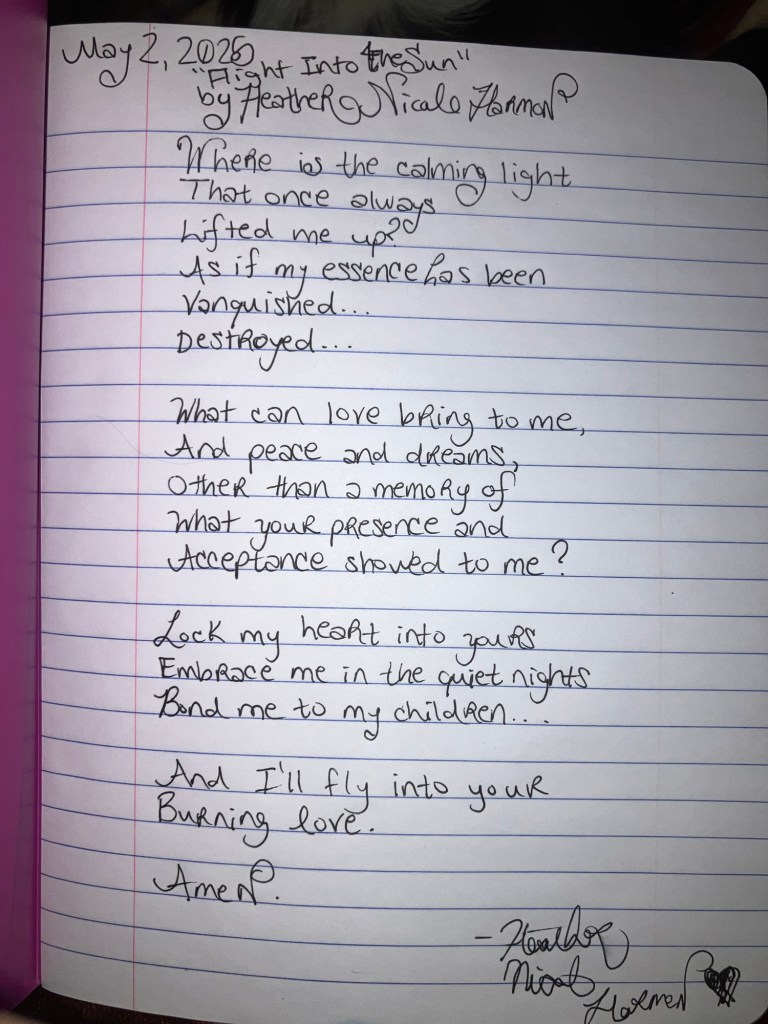 May 2, 2025
"Flight Into the Sun"
by Heather Nicole Harmon
Where is the calming light
That once always
Lifted me up?
As if my essence has been
Vanquished...
Destroyed...
What can love bring to me,
And peace and dreams,
Other than a memory of
What your presence and
Acceptance showed to me?
Lock my heart into yours
Embrace me in the quiet nights
Bond me to my children....
And I'll fly into your
Burning love.
Amen.
- Heather
Nicole
Harmon